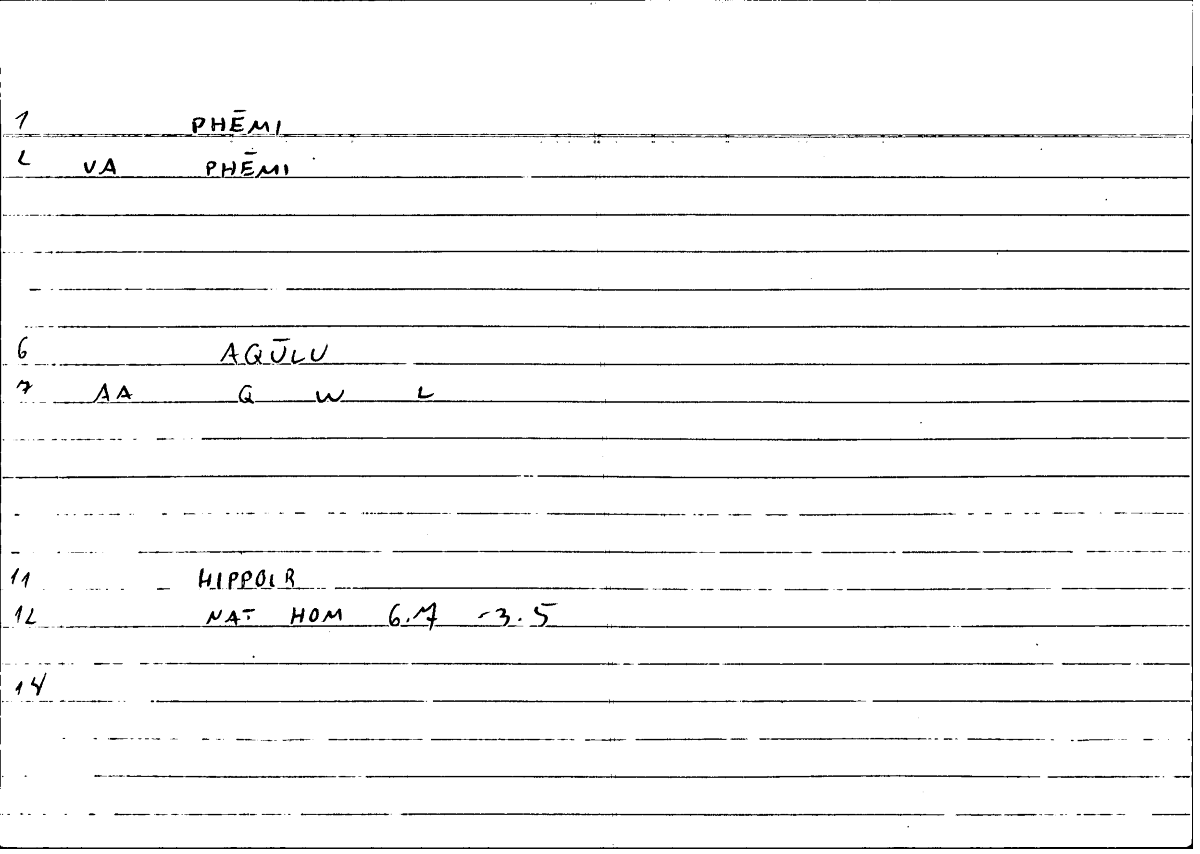 1 PHĒMI
2 VA PHĒMI
6 AQŪLU
7 AA Q W L
11 HIPPOCR
12 NAT HOM 6.7 -3.5
14